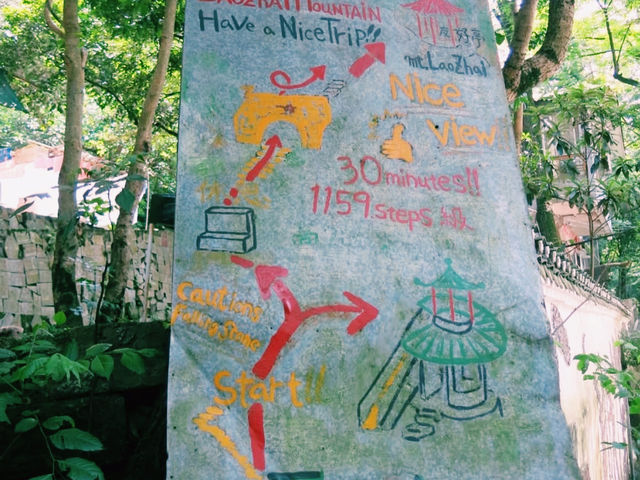 LAOZHAI MOUNTAIN
HAVe a NiceTRip!!
友好亭
mt.LaoZhai
Nice
View
30 minutes!!
1159 steps 級
Cautions
falling Stone
Start!!